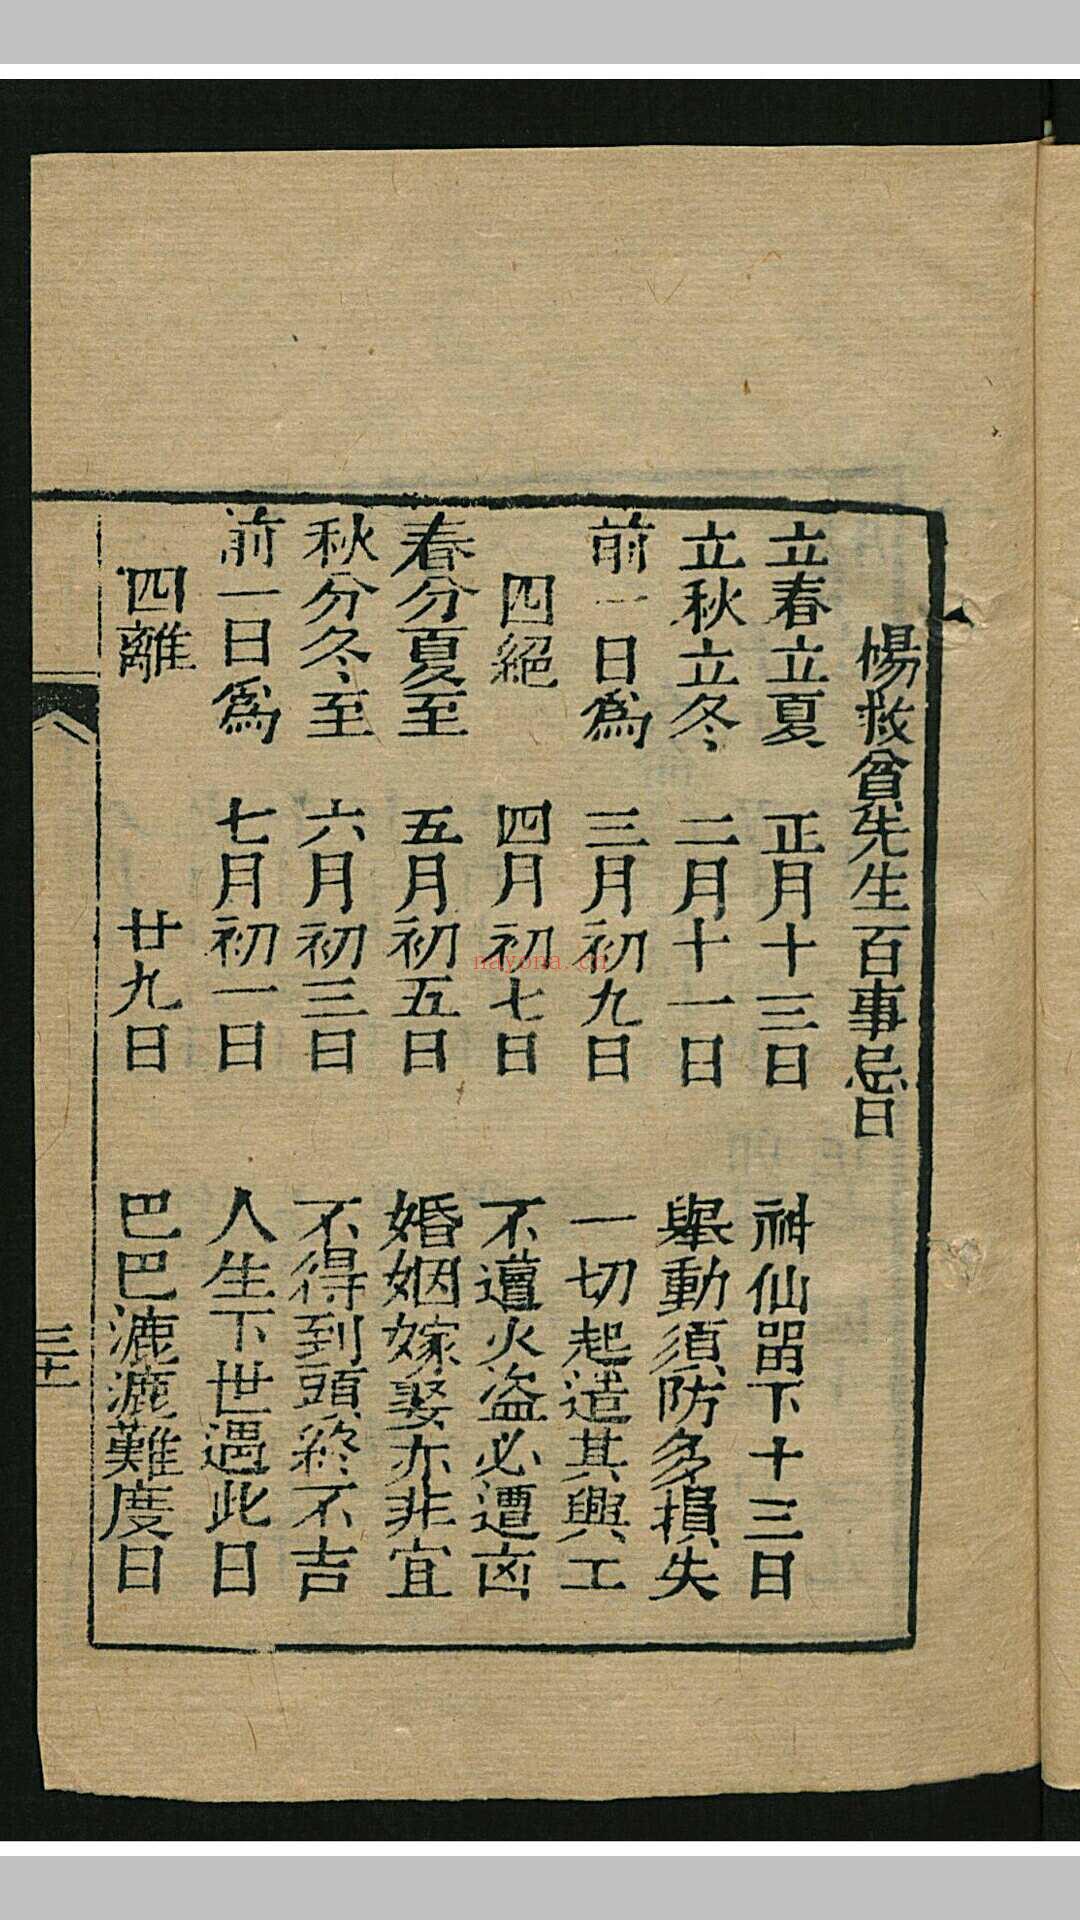 楊救貧先生百事忌日
立春立夏　正月十三日　神仙畱下十三日
立秋立冬　二月十一日　舉動須防多損失
前一日爲　三月初九日　一切起造其興工
四絕　四月初七日　不遭火盜必遭凶
春分夏至　五月初五日　婚姻嫁娶亦非宜
秋分冬至　六月初三日　不得到頭終不吉
前一日爲　七月初一日　人生下世遇此日
四離　廿九日　巴巴漉漉難度日
三十
nayona.cn